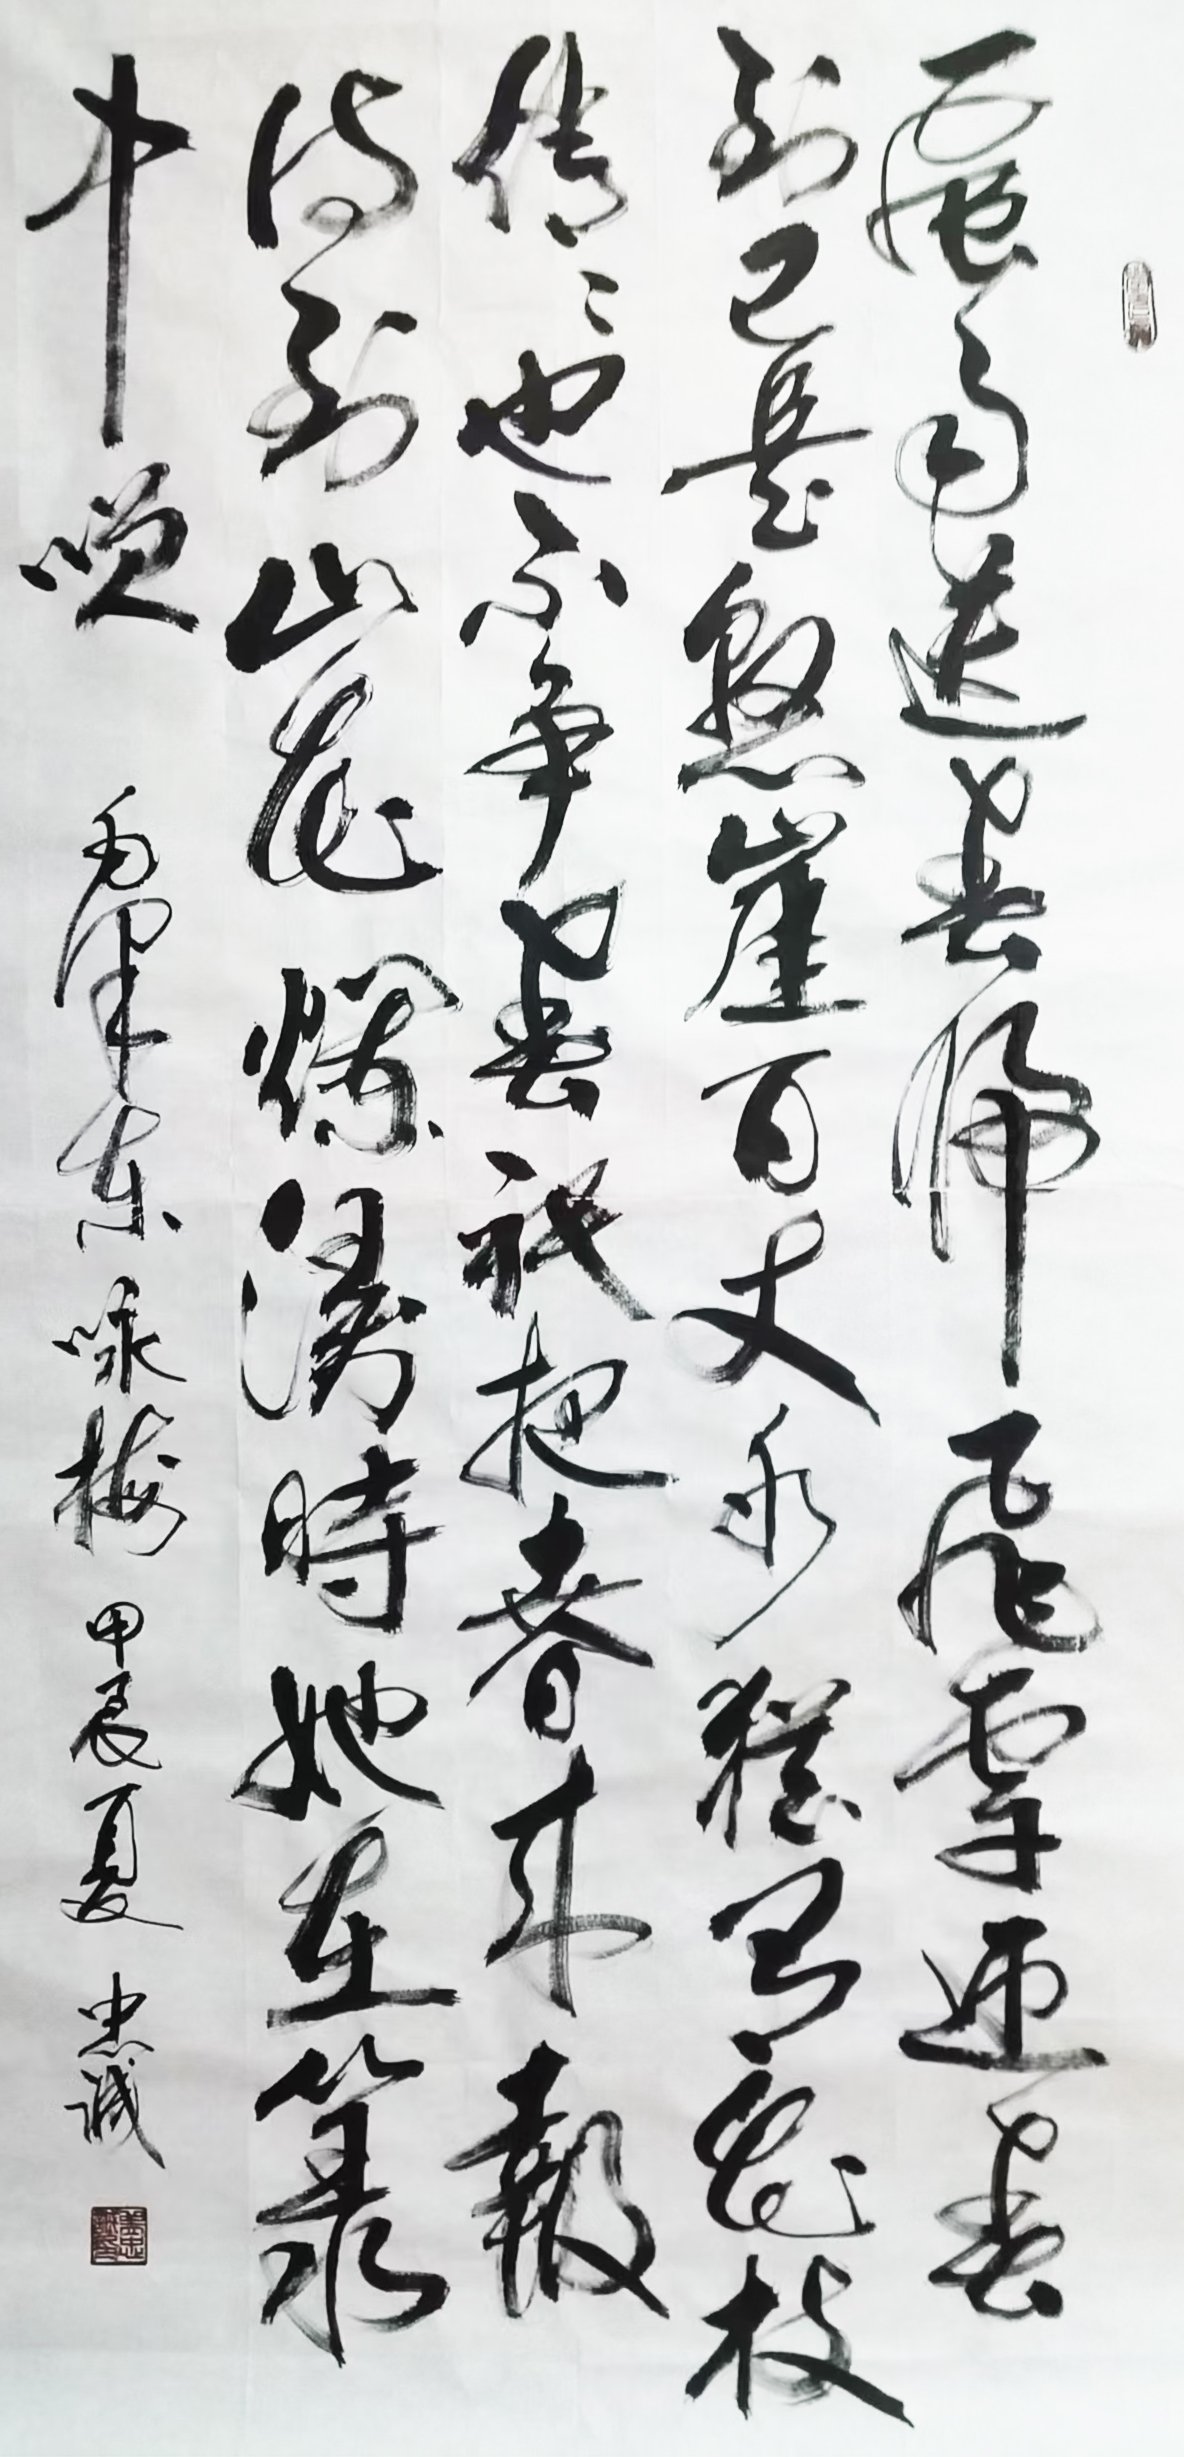 風雨送春歸飛雪迎春
到已是懸崖百丈冰猶有花枝
俏俏也不爭春祇把春來報
待到山花爛漫時她在叢
中笑
毛澤東咏梅甲辰夏忠誠